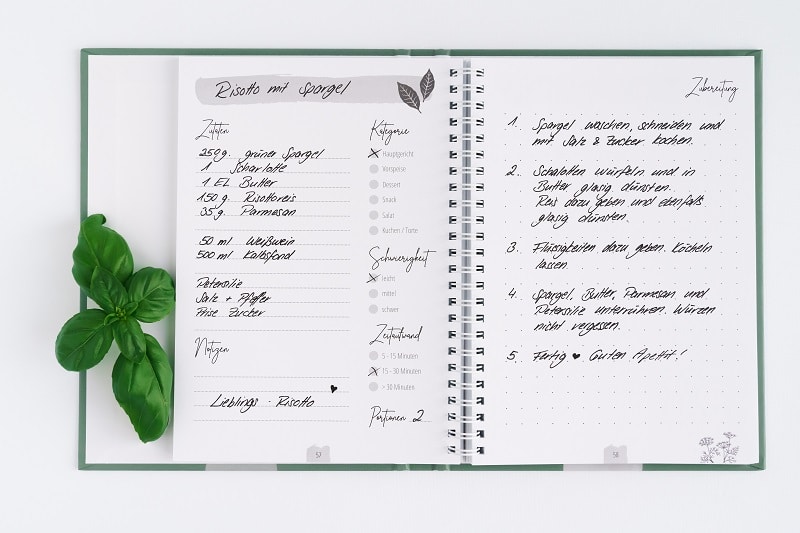 Risotto mit Spargel
Zutaten
250g. grüner Spargel
1 Scharlotte
1 EL Butter
150 g. Risottoreis
35g. Parmesan
50 ml Weißwein
500 ml Kalbsfond
Petersilie
Salz + Pfeffer
Prise Zucker
Notizen
Lieblings - Risotto
Kategorie
Hauptgericht
Vorspeise
Dessert
Snack
Salat
Kuchen / Torte
Schwierigkeit
leicht
mittel
schwer
Zeitaufwand
5 - 15 Minuten
15 - 30 Minuten
> 30 Minuten
Portionen 2
57
Zubereitung
1. Spargel waschen, schneiden und
mit Salz & Zucker kochen.
2. Schalotten würfeln und in
Butter glasig dünsten.
Reis dazu geben und ebenfalls
glasig dünsten.
3. Flüssigkeiten dazu geben. Köcheln
lassen.
4. Spargel, Butter, Parmesan und
Petersilie unterrühren. Würzen
nicht vergessen.
5. Fertig ♥ Guten Apettit!
58